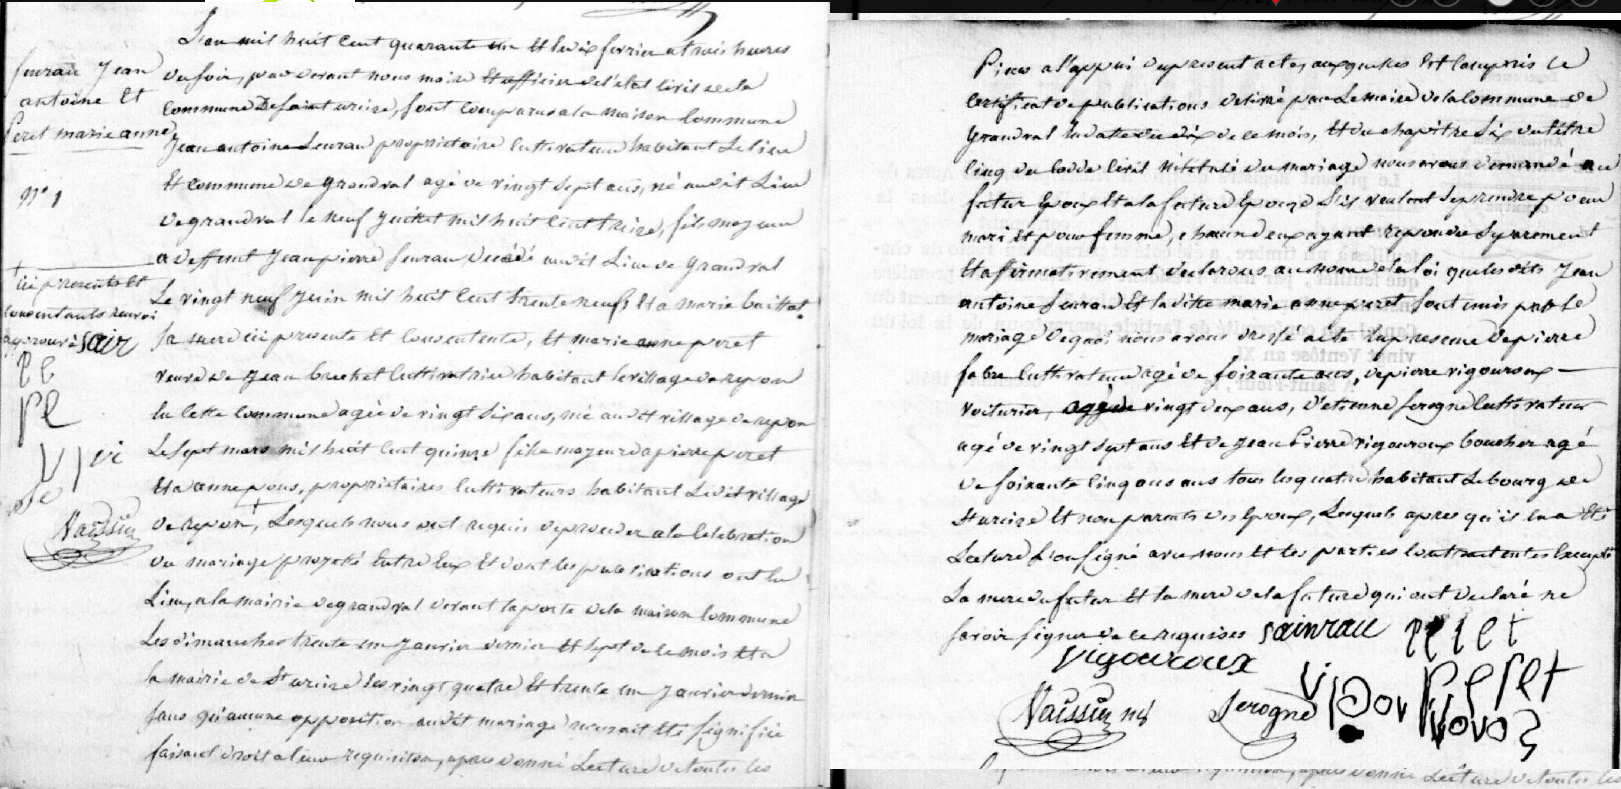 L'an mil huit cent quarante un et le dix fevrier a trois heures
du soir, par devant nous maire et officier de l'etat civil de la
commune de saint urcize, sont comparus a la maison commune
jean antoine seurau proprietaire cultivateur habitant le lieu
et commune de grandval agé de vingt sept ans, né au dit lieu
de grandval le neuf juillet mil huit cent treize, fils majeur
a deffunt jean pierre seurau, decédé au dit lieu de grandval
le vingt neuf juin mil huit cent trente neuf, et a marie
sa mere ici presente et consentente, et marie anne peret
veuve de jean brechet cultivatrice habitant le village de repon
en cette commune agée de vingt six ans, née au dt village de repon
le sept mars mil huit cent quinze fille majeure a pierre peret
et a anne pous, proprietaires cultivateurs habitant le dit village
de repon, + lesquels nous ont requis de proceder a la celebration
du mariage projeté entre eux et dont les publications ont eu
lieu, a la mairie de grandval devant la porte de la maison commune
les dimanches trente un janvier dernier et sept de ce mois et a
la mairie de St urcize les vingt quatre et trente un janvier dernier
sans qu'aucune opposition au dit mariage nous ait été signifiée
faisant droit a leur requisition, apres donné lecture de toutes les
seurau jean
antoine et
peret marie anne
n° 1
+ ici presents et
consentants renvoi
approuvé sair
pe
pe
vi
Vaissier
Pieces a l'appui du present acte, auxquelles est compris le
certificat de publications delivré par le maire de la commune de
grandval en date du dix de ce mois, et du chapitre six du titre
cinq du code civil intitulé du mariage nous avons demandé au
futur epoux et a la future epouse s'ils veulent se prendre pour
mari et pour femme, chacun d'eux ayant repondu separement
et affirmativement declarons au nom de la loi que les dits jean
antoine seurau et la dite marie anne peret sont unis par le
mariage de quoi nous avons dressé acte en presence de pierre
fabre cultivateur agé de soixante ans, de pierre vigouroux
voiturier, agé de vingt deux ans, d'etienne serogne cultivateur
agé de vingt sept ans et de jean Pierre vigouroux boucher agé
de soixante cinq ans tous les quatre habitant le bourg de
St urcize et non parents des epoux, lesquels apres qu'il en a été
lecture l'ont signé avec nous et les parties contractentes excepté
la mere du futur et la mere de la future qui ont declaré ne
savoir signer de ce requises sainrau peret
vigouroux
Vaissier mre Serogne vigou pierre peret
roux